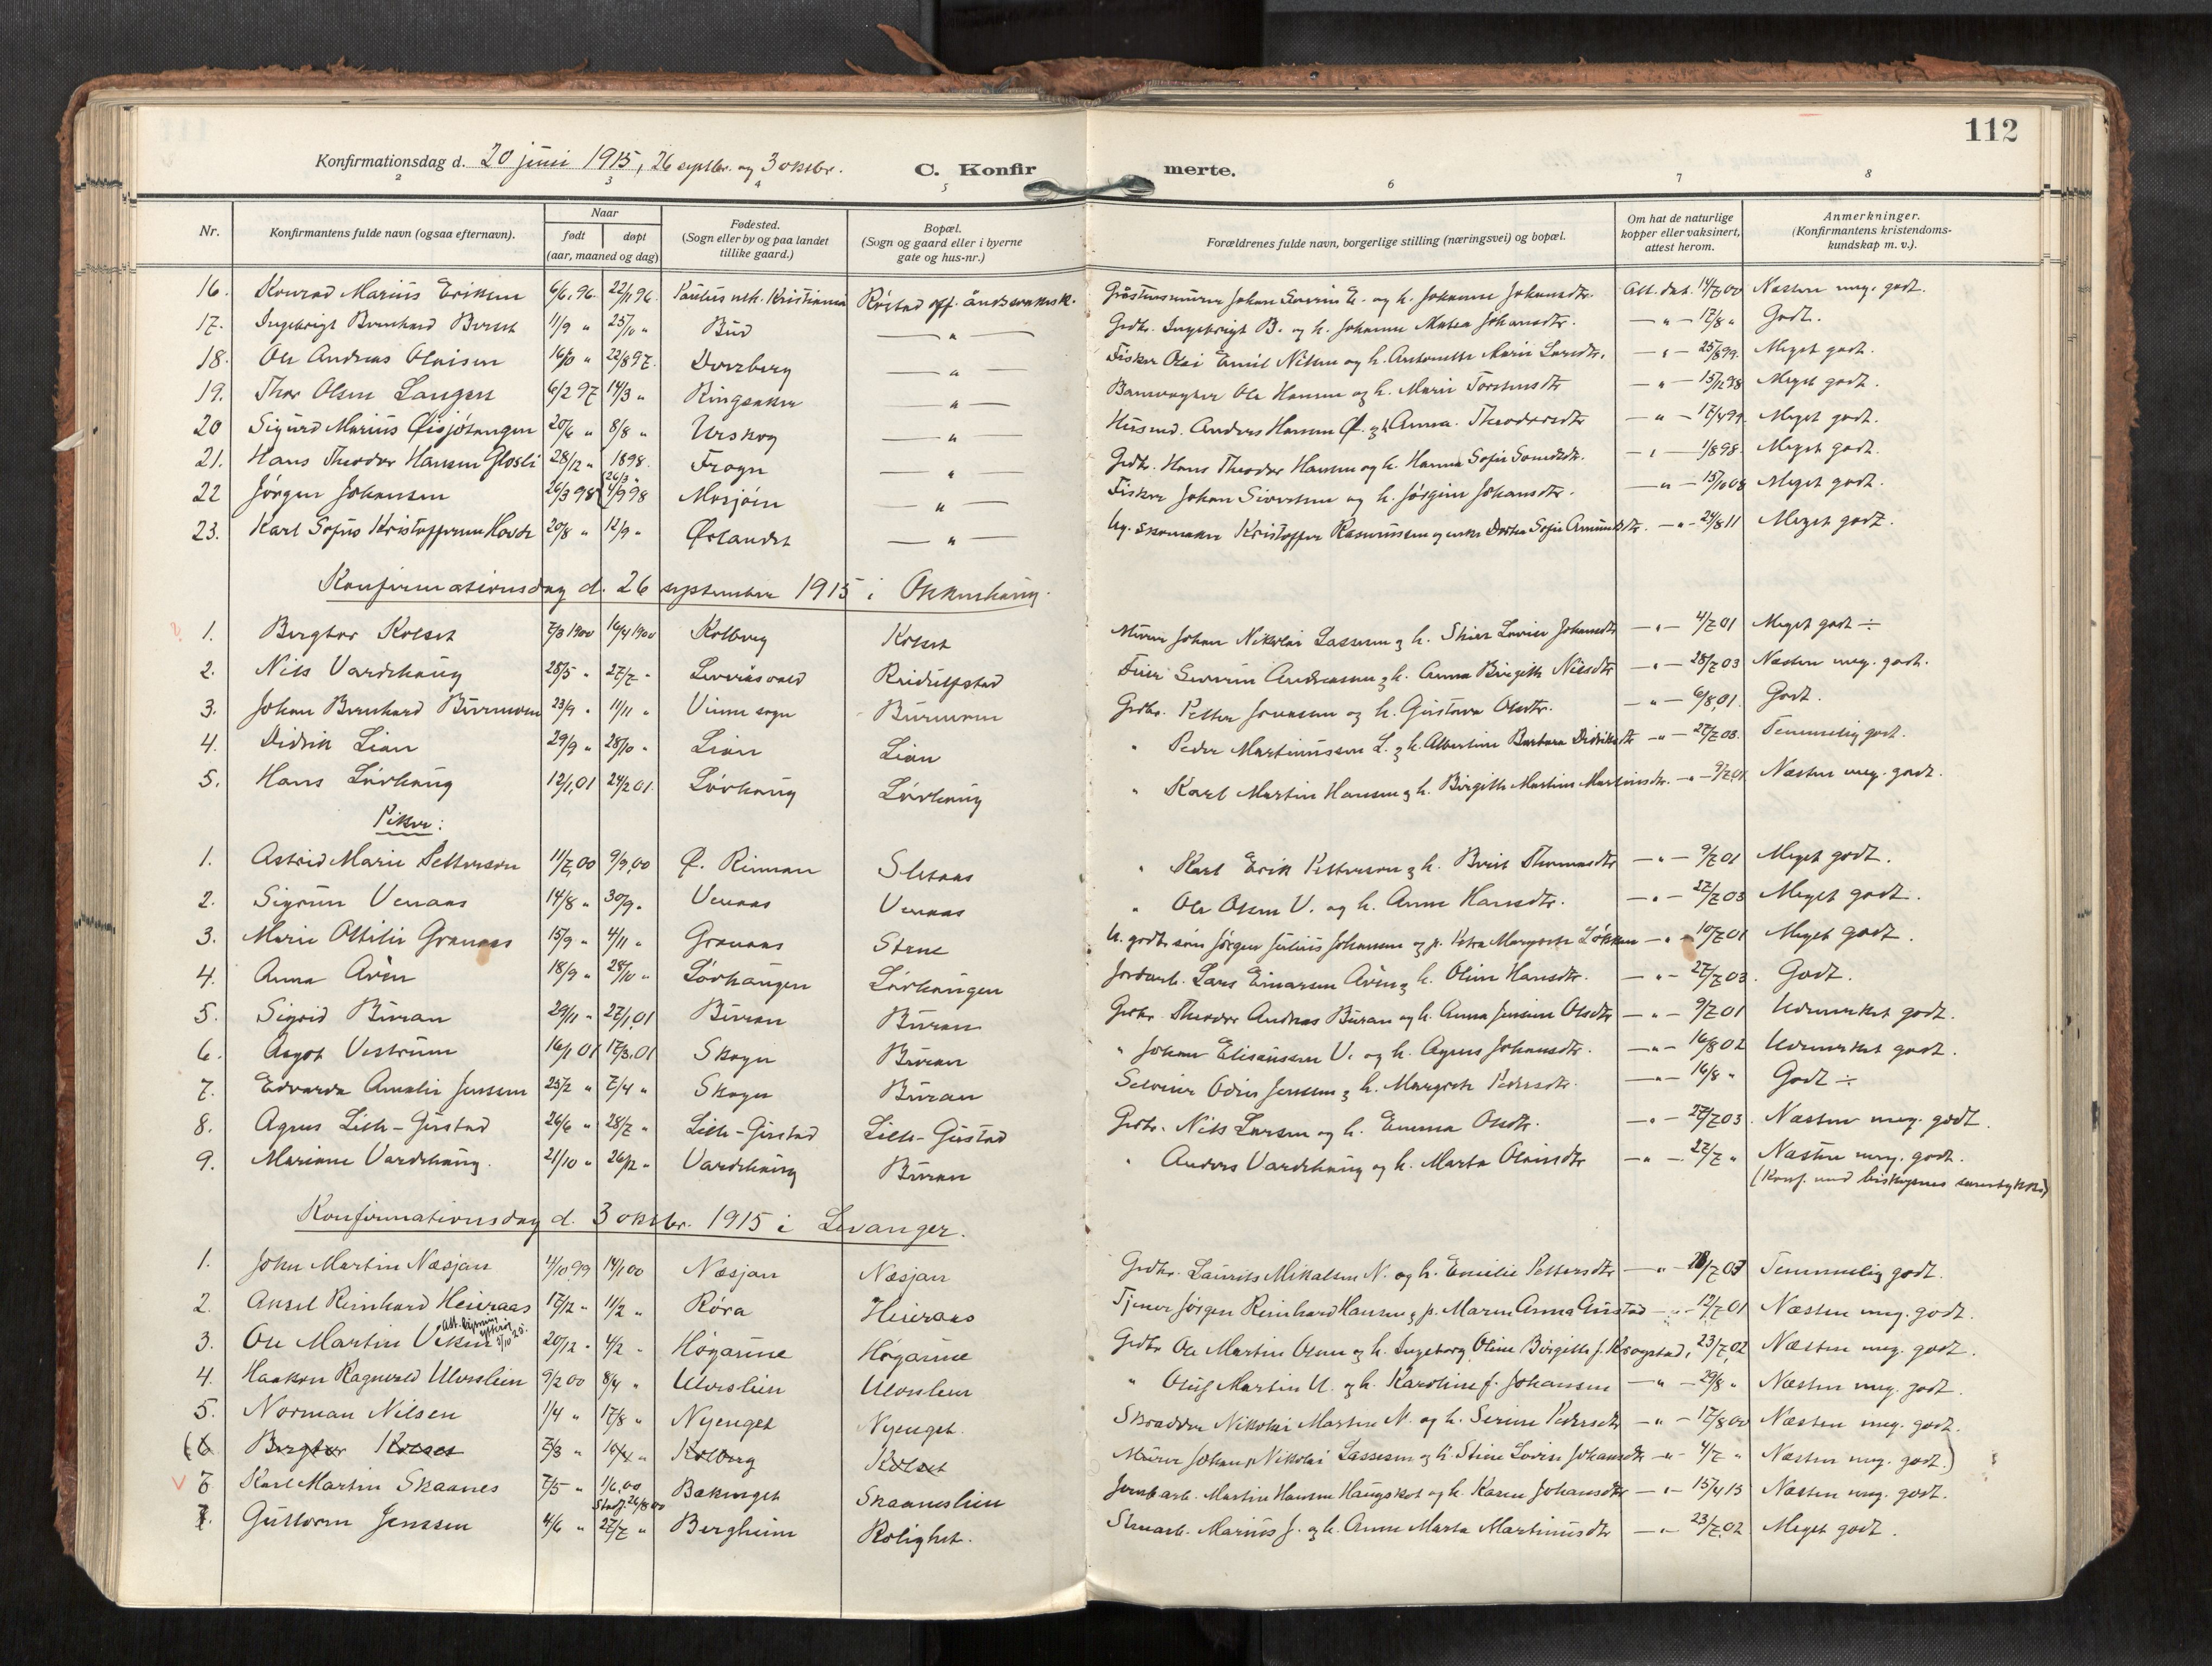 112
Konfirmationsdag d. 20 juni 1915, 26 septbr. og 3 oktbr. C. Konfir merte.
2 3 4 5 6 7 8
Nr. Konfirmantens fulde navn (ogsaa efternavn). Naar født døpt (aar, maaned og dag) Fødested. (Sogn eller by og paa landet tillike gaard.) Bopæl. (Sogn og gaard eller i byerne gate og hus-nr.) Forældrenes fulde navn, borgerlige stilling (næringsvei) og bopæl. Om hat de naturlige kopper eller vaksinert, attest herom. Anmerkninger. (Konfirmantens kristendoms-kundskap m. v.).
16. Konrad Marius Eriksen 6/6.96. 22/11 96. Paulus mh. Kristiania Røstad off. åndssvaksk. Johan Severin E. og h. Johanne Johansdtr. Att. dat. 14/7.00 Næsten meg. godt.
17. Ingebrigt Bernhard 11/9 " 25/10 " Bud — " — Grdbr. Ingebrigt B. og h. Johanne Matea Johansdtr. — " — 17/8 " Godt.
18. Ole Andreas Olaisen 16/10 " 22/8 97. Dverberg — " — Fisker Olai Emil Nilsen og h. Antonette Marie Larsdtr. — " — 25/8 99. Meget godt.
19. Thor Olsen Langen 6/2 97 14/3 " Ringsaker — " — Banevogter Ole Hansen og h. Marie Torstensdtr — " — 15/12 98 Meget godt.
20 Sigurd Marius 20/6 " 8/8 " Urskog — " — Husmd. Anders Hansen Ø. og h. Anna Theodorsdtr — " — 17/4 99. Meget godt.
21. Hans Theodor Hansen Glosli 28/12 " 1898. Frogn — " — Grdbr. Hans Theodor Hansen og h. Hanna Sofie — " — 1/8 98. Meget godt.
22 Jørgen Johansen 26/3 98 26/3 " 4/9 98 Mosjøen — " — Fisker Johan Sivertsen og h. Jørgine Johansdtr. — " — 15/10 08 Meget godt.
23. Karl Sofus Kristoffersen Hovde 20/8 " 12/9 " Ørlandet — " — Ug. skomaker Kristoffer Rasmussen og enke Dortea Sofie Amundsdtr. — " — 24/8 11 Meget godt.
Konfirmationsdag d. 26 september 1915 i Okkenhaug.
1. Bergtor Kolset 7/3 1900 16/4 1900 Kolberg Kolset Murer Johan Nikolai Lassesen og h. Stine Lovise Johansdtr — " — 4/7 01 Meget godt ÷
2. Nils Vardehaug 28/5 " 27/7 " Reidulfstad Severin Andreassen og h. Anna Birgitte Nilsdtr — " — 28/7 03 Næsten meg. godt.
3. Johan Bernhard Burmoen 23/9 " 11/11 " Vinne sogn Burmoen Grdbr. Petter Jonassen og h. Gustava Olsdtr. — " — 6/8.01. Godt.
4. Didrik Lian 29/9 " 28/10 " Lian Lian " Peder Martinussen L. og h. Albertine Barbara Didriksdtr — " — 27/7 03. Temmelig godt.
5. Hans Løvhaug 12/1.01 24/2 01. Løvhaug Løvhaug " Karl Martin Hansen og h. Birgitte Martine Martinsdtr. — " — 9/7.01 Næsten meg. godt.
Piker:
1. Astrid Marie Petterson 11/7.00 9/9.00 Ø. Rinnan Sletaas " Karl Erik Petterson og h. Berit Thomasdtr — " — 9/7 01 Meget godt.
2. Sigrun Venaas 14/8 " 30/9 " Venaas Venaas " Ole Olsen V. og h. Anne Hansdtr. — " — 27/7 03 Meget godt.
3. Marie Ottilie Granaas 15/9 " 4/11 " Granaas Stene U. grdbr.søn Jørgen Julius Johansen og p. Petra Margrete Løkken — " — 10/7 01 Meget godt.
4. Anna Aren 18/9 " 28/10 " Løvhaugen Løvhaugen Jordarb. Lars Einarsen Aren og h. Oline Hansdtr. — " — 27/7 03. Godt.
5. Sigrid Buran 29/11 " 27/1.01 Buran Buran Grdbr. Theodor Andreas Buran og h. Anna Jensine Olsdtr — " — 9/7 01 Udmerket godt.
6. Aagot Vestrum 16/1 01 17/3.01 Skogn Buran " Johan Eliseussen V. og h. Agnes Johansdtr. — " — 16/8 02 Udmerket godt.
7. Edvarda Amalie Jenssen 25/2 " 7/4 " Skogn Buran Selveier Odin Jenssen og h. Margrete Pedersdtr. — " — 16/8 " Godt ÷
8. Agnes Lille-Gjerstad 26/6 " 28/7 " Lille-Gjerstad Lille-Gjerstad Grdbr. Nils Larsen og h. Emma Olsdtr. — " — 27/7 03. Næsten meg. godt.
9. Mariane Vardehaug. 21/10 " 26/12 " Vardehaug Buran " Anders Vardehaug og h. Marta Olaisdtr — " — 27/7 " Næsten meg. godt.
(Konf. med biskopens samtykke)
Konfirmationsdag d. 3 oktbr. 1915 i Levanger.
1. John Martin Næsjan 4/10 99 14/1 00 Næsjan Næsjan Grdbr. Laurits Mikalsen N. og h. Emilie Pettersdtr — " — 28/7 03 Temmelig godt.
2. Aksel Reinhard Heieraas 17/12 " 11/2 " Røra Heieraas Tjener Jørgen Reinhard Hansen og p. Maren Anna Gustad — " — 12/7 01 Næsten meg. godt.
3. Ole Martin 20/12 " 4/2 " Høgaune Høgaune Grdbr. Ole Martin Olsen og h. Ingeborg Oline Birgitte f. Krogstad. 23/7.02 Næsten meg. godt.
4. Haakon Ragnvald Ulveslien 9/2 00 8/4 " Ulveslien Ulveslien " Oluf Martin U. og h. Karoline f. Johansen — " — 29/8 " Næsten meg. godt.
5. Norman Nilsen 1/4 " 17/8 " Nyenget Nyenget. Skrædder Nikolai Martin N. og h. Serine Pedersdtr — " — 17/8 00 Næsten meg. godt.
(6 Bergtor Kolset 7/3 " 16/4 " Kolberg Kolset Murer Johan Nikolai Lassesen og h. Stine Lovise Johansdtr — " — 4/7 " Næsten meg. godt.)
6 Karl Martin Skaanes 7/5 " 1/6.00 Stadf. 26/8 00 Bakenget Skaaneslien Jernbarb. Martin Hansen Haugskot og h. Karen Johansdtr — " — 15/4 15 Næsten meg. godt.
7. Guttorm Jenssen 4/6 " 27/7 " Bergheim Rolighet. Stuearb. Marius J. og h. Anne Marta Martinusdtr — " — 23/7.02 Meget godt.